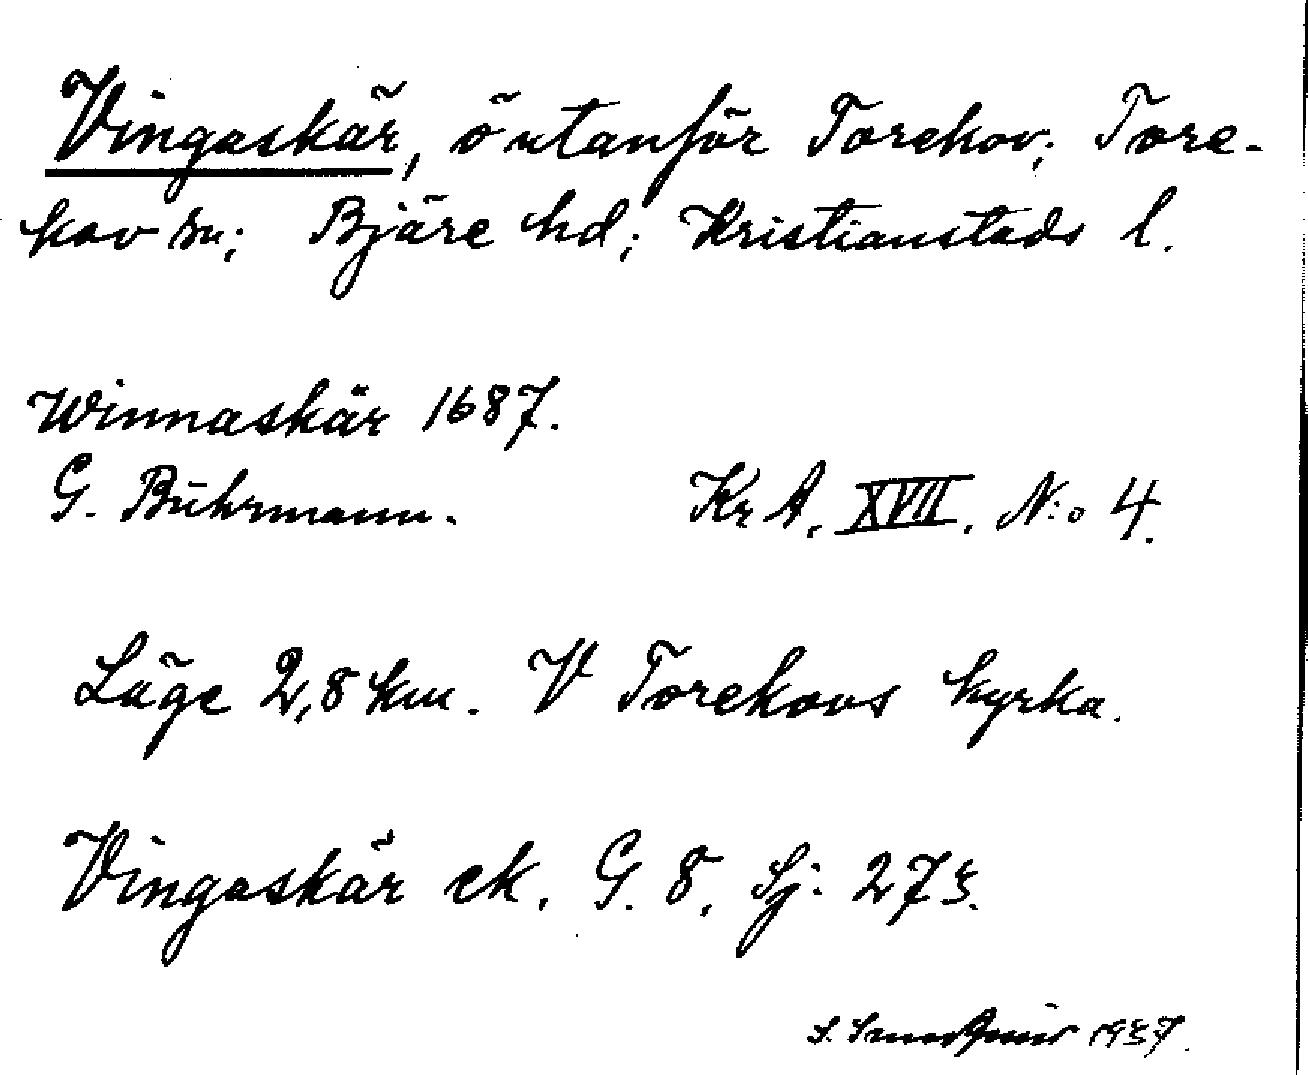 Vingaskär, ö utanför Torekov; Tore-
kov sn; Bjäre hd; Kristianstads l.
Winnaskär 1687.
G. Buhrmann. Kr A, XVII, N:o 4.
Läge 2,8 km. V Torekovs kyrka.
Vingaskär ek. G. 8, Sj: 273.
S. 1937.